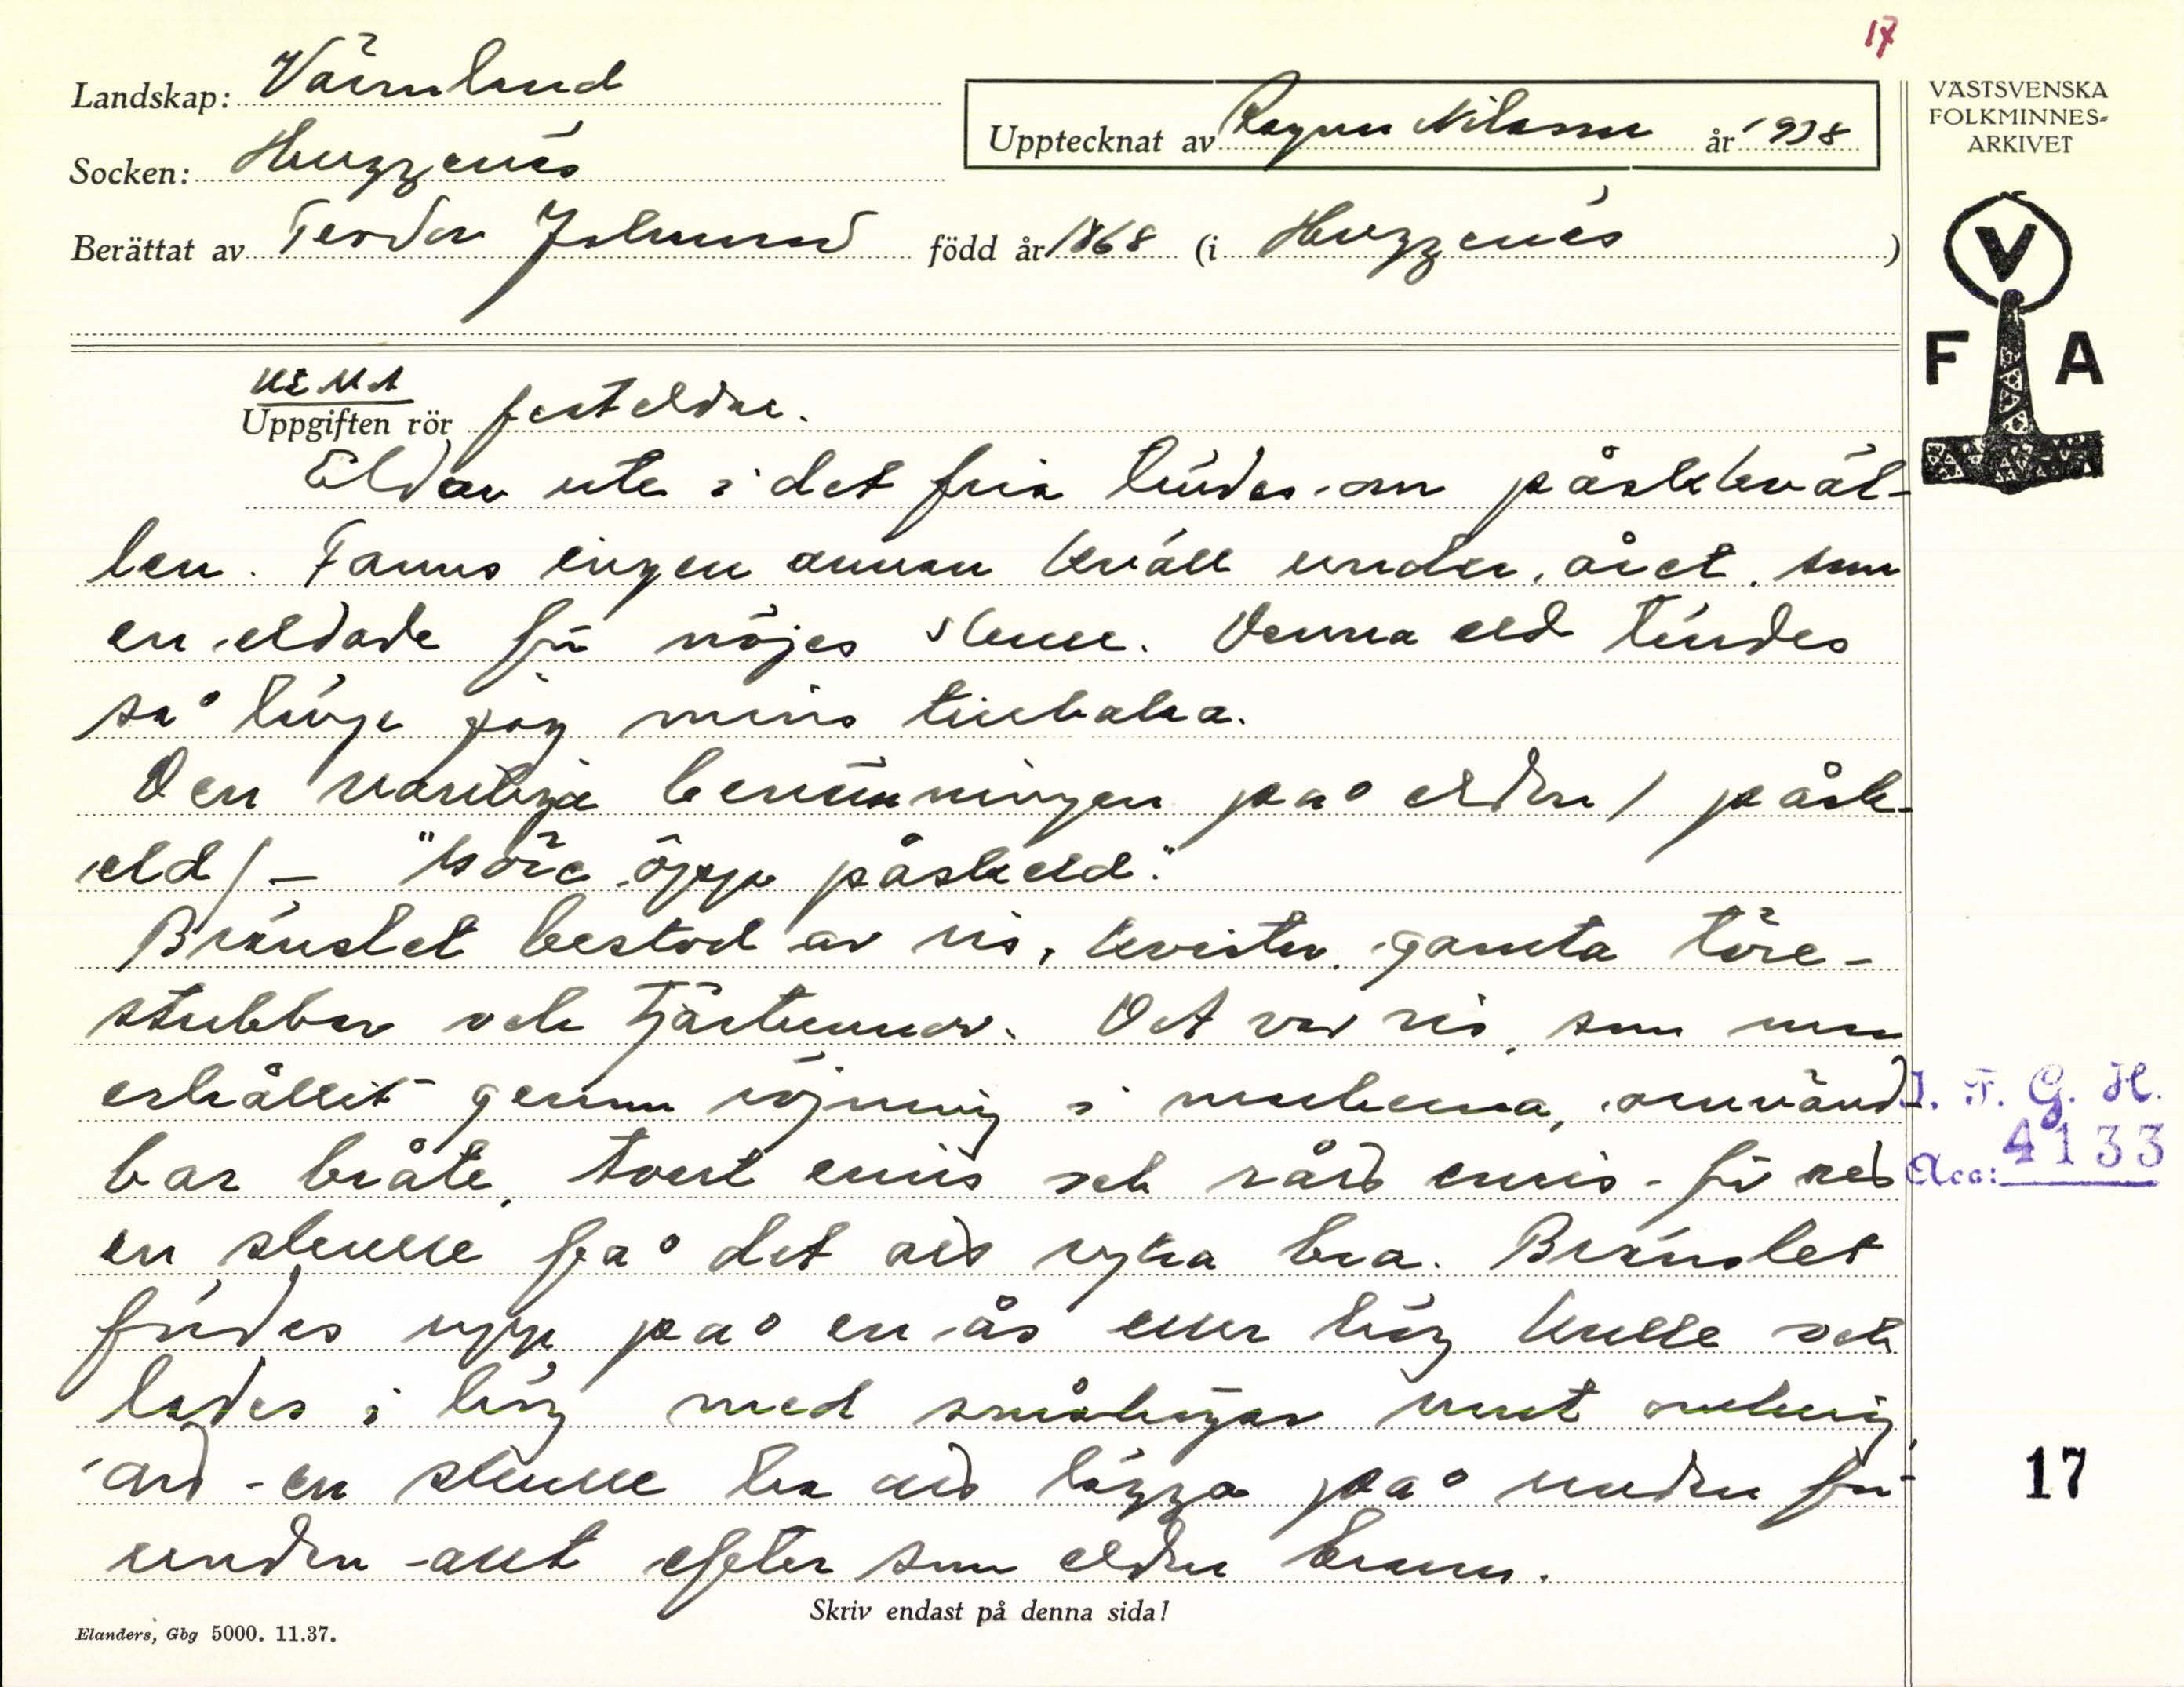 17
Landskap: Värmland
Upptecknat av Ragnar Nilsson år 1938
VÄSTSVENSKA
FOLKMINNES-
ARKIVET
Socken: Huggenäs
Berättat av Teodor Johansson född år 1868 (i Huggenäs)
V
F A
Uppgiften rör festeldar.
Eldar ute i det fria tändes om påskkväl-
len. Fanns ingen annan kväll under året, som
en eldade för nöjes skull. Denna eld tändes
så länge jag minns tillbaka.
Den vanliga benämningen på elden / påsk-
eld / - "köre öpp påskeld."
Bränslet bestod av ris, kvistar, gamla töre-
stubbar och tjärtunnor. Det var ris, som man
erhållit genom röjning i markerna, oanvänd-
bar bråte, torrt enris och rått enris - för att
en skulle få det att ryka bra. Bränslet
I. F. G. H.
Acc: 4133
fördes upp på en ås eller hög kulle och
lades i hög med småhögar runt omkring,
att en skulle ha att lägga på undan för
undan - allt efter som elden brann.
17
Skriv endast på denna sida!
Elanders, Gbg 5000. 11.37.